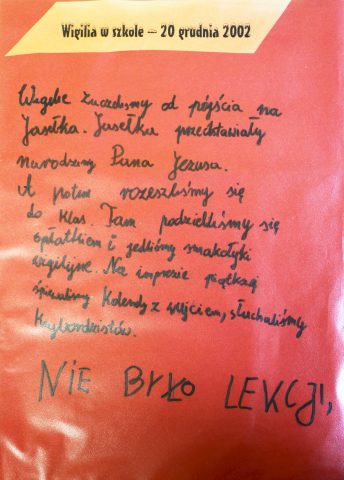 Wigilia w szkole – 20 grudnia 2002
Wigilie zaczeliśmy od pójścia na
Jasełka. Jasełka przedstawiały
narodziny Pana Jezusa.
A potem rozeszliśmy się
do klas. Tam podzieliliśmy się
opłatkiem i jedliśmy smakołyki
wigilijne. Na imprezie
śpiewaliśmy Kolendy z, słuchaliśmy
NIE BYŁO LEKCJI,